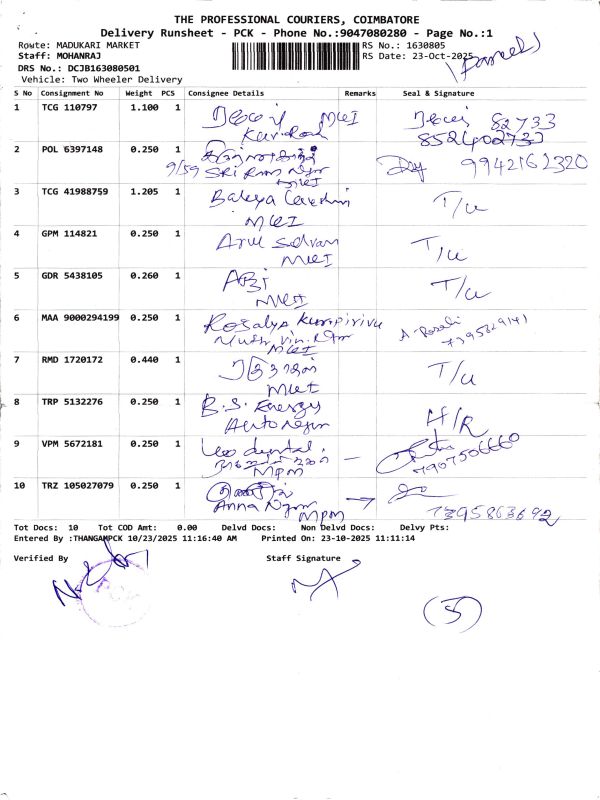 THE PROFESSIONAL COURIERS, COIMBATORE
Delivery Runsheet - PCK - Phone No.:9047080280 - Page No.:1
Route: MADUKARI MARKET RS No.: 1630805
Staff: MOHANRAJ RS Date: 23-Oct-2025
DRS No.: DCJB163080501
Vehicle: Two Wheeler Delivery
S No Consignment No Weight PCS Consignee Details Remarks Seal & Signature
1 TCG 110797 1.100 1 MKI 82733
8524002733
2 POL 6397148 0.250 1 9942162320
9/59 SRI Ram Ngr
MKI
3 TCG 41988759 1.205 1 T/U
MKI
4 GPM 114821 0.250 1 Arul Selvam T/U
MKI
5 GDR 5438105 0.260 1 ABI T/U
MKI
6 MAA 9000294199 0.250 1 Rosalya A. Rosali
7395829141
MKI
7 RMD 1720172 0.440 1 T/U
MKI
8 TRP 5132276 0.250 1 B.S. Energy H/R
Auto Ngr
9 VPM 5672181 0.250 1 Leo dental
7907506660
MPM
10 TRZ 105027079 0.250 1
Anna Ngr
MPM 7395863692
Tot Docs: 10 Tot COD Amt: 0.00 Delvd Docs: Non Delvd Docs: Delvy Pts:
Entered By :THANGAMPCK 10/23/2025 11:16:40 AM Printed On: 23-10-2025 11:11:14
Verified By Staff Signature
5